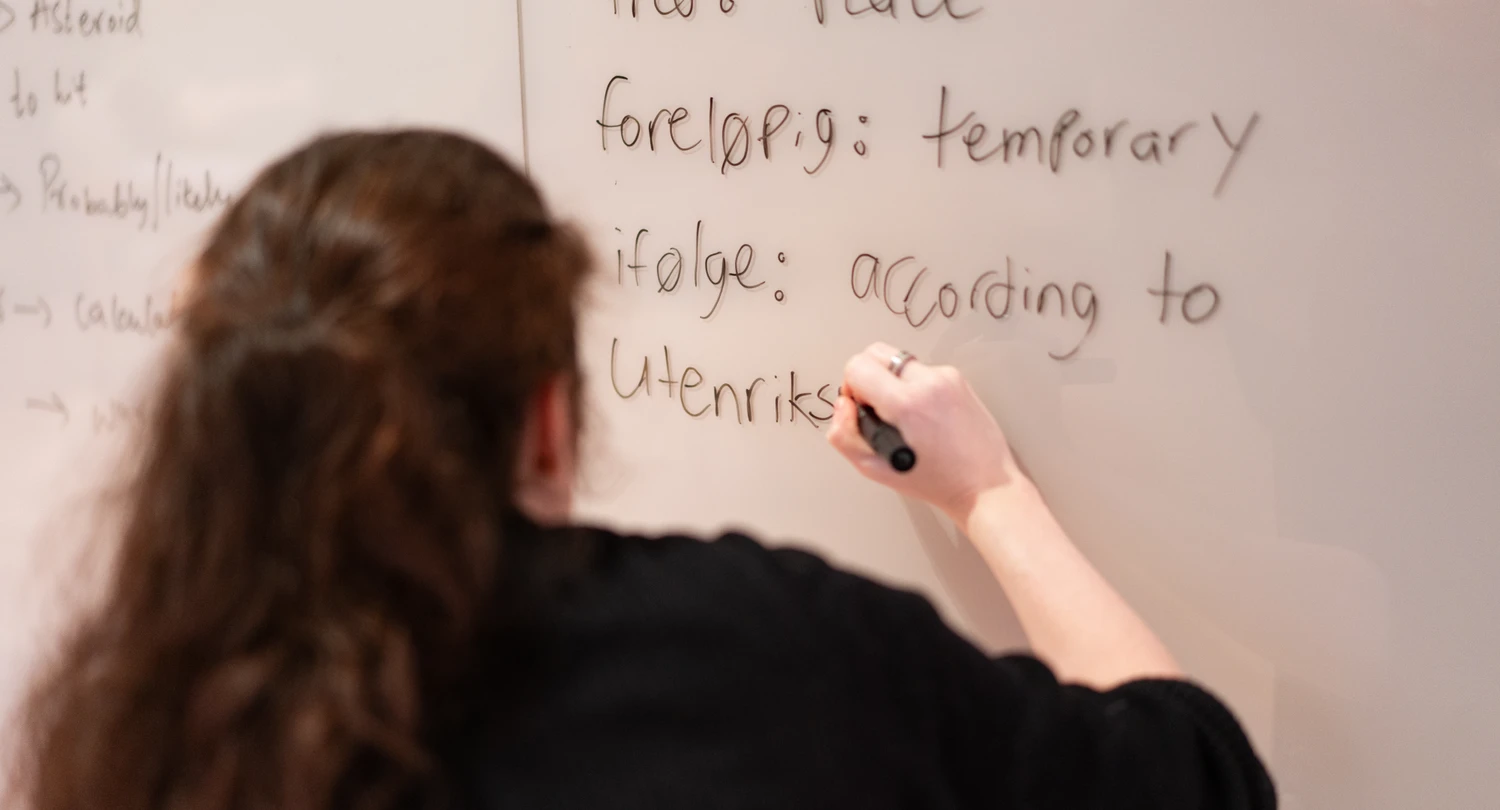 Asteroid
to hit
Probably/likely
foreløpig: temporary
ifølge: according to
Utenriks